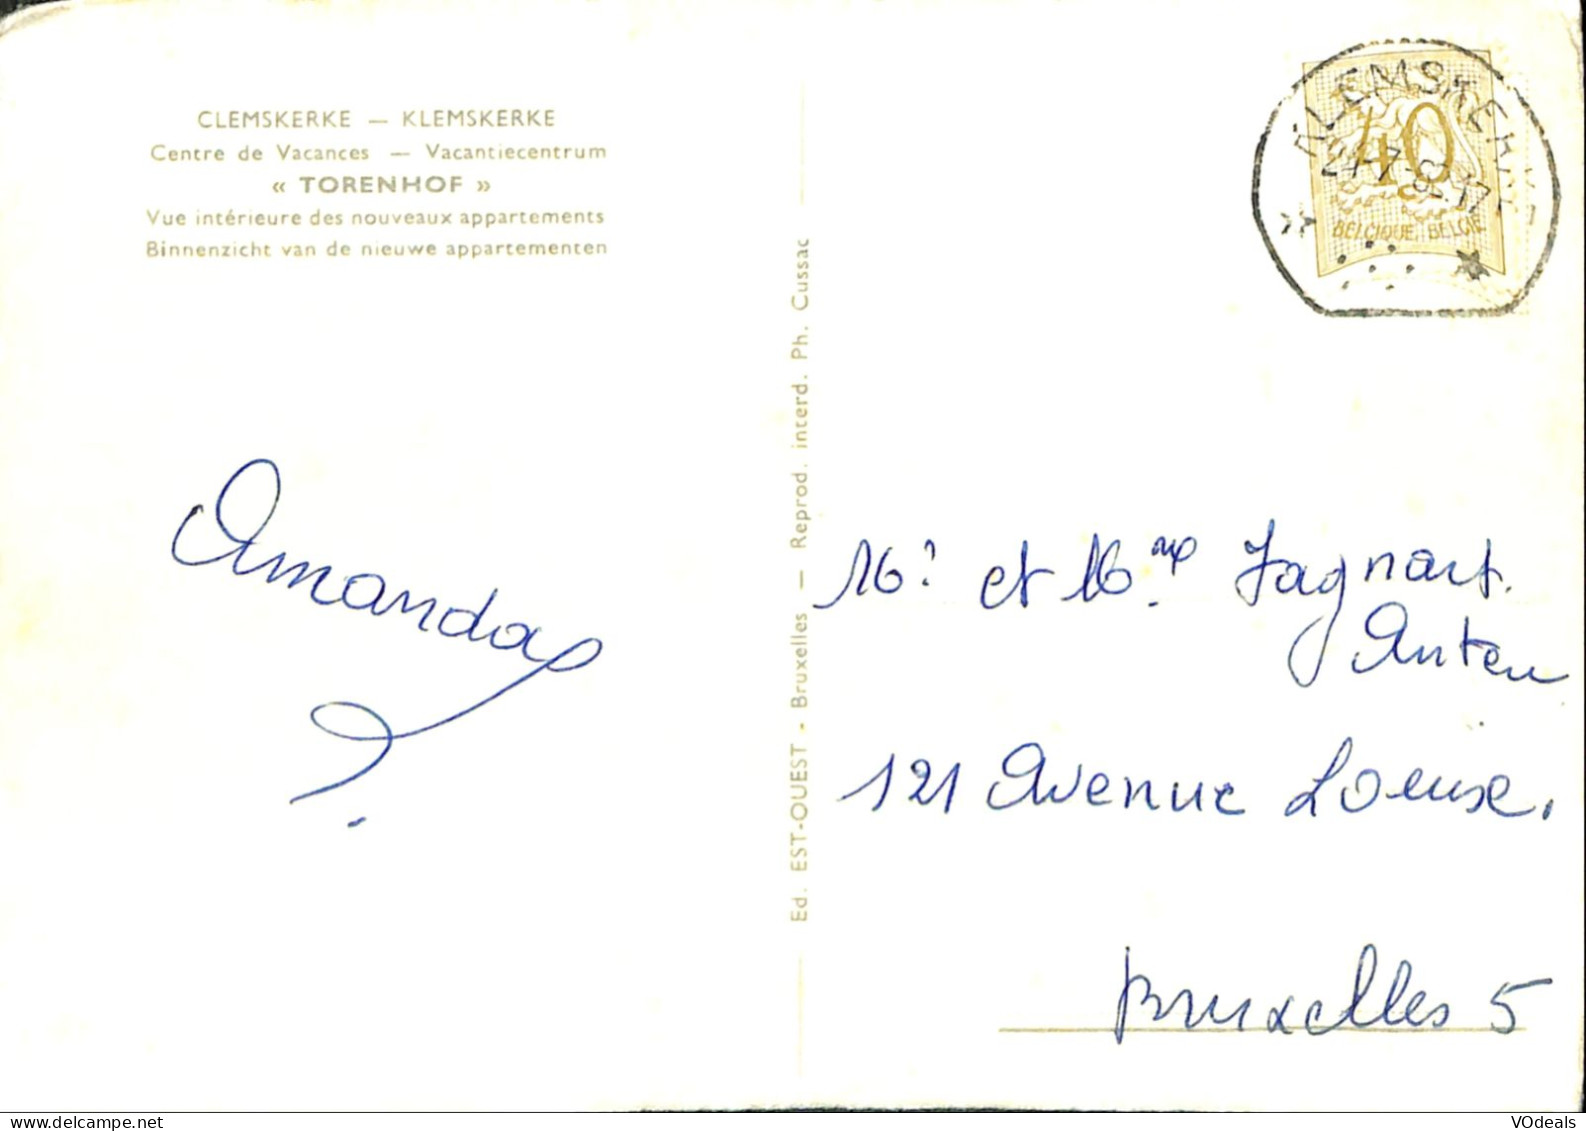 CLEMSKERKE — KLEMSKERKE
Centre de Vacances — Vacantiecentrum
« TORENHOF »
Vue intérieure des nouveaux appartements
Binnenzicht van de nieuwe appartementen
Ed. EST-OUEST - Bruxelles — Reprod. interd. Ph. Cussac
KLEMSKERKE
40
BELGIQUE BELGIE
Amanda
Mr et Mme Fagnart.
Anten
121 Avenue Louise.
Bruxelles 5
VOdeals